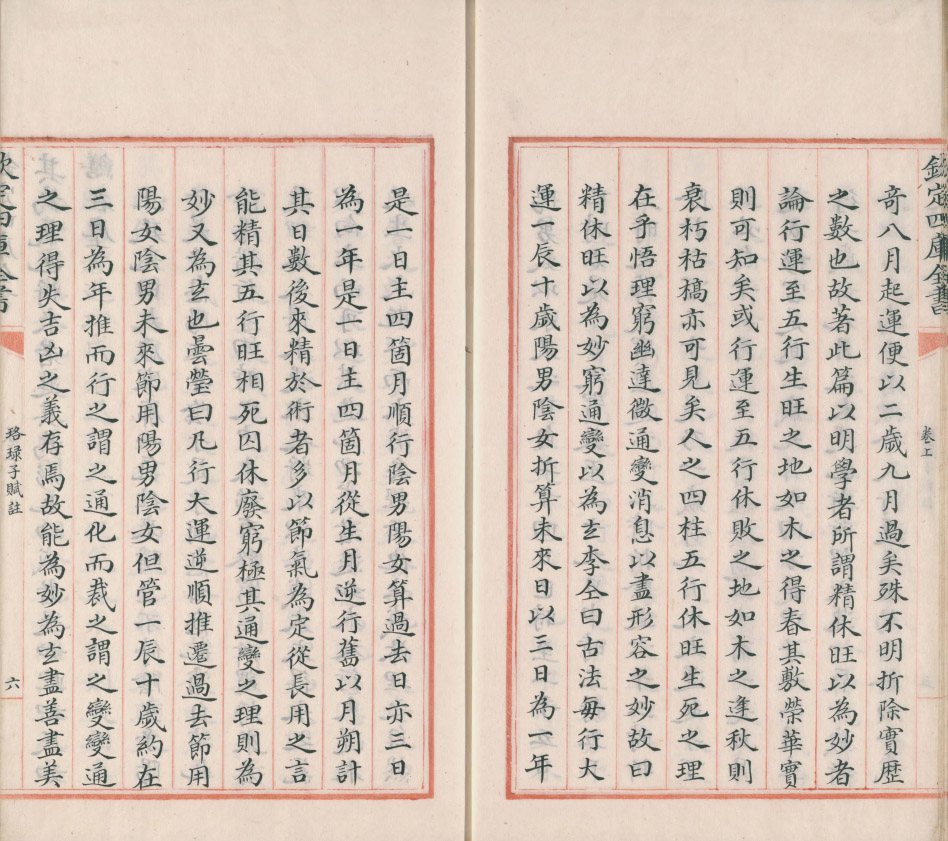 欽定四庫全書
卷上
奇八月起運便以二歲九月過矣殊不明折除實歴
之數也故著此篇以明學者所謂精休旺以為妙者
論行運至五行生旺之地如木之得春其敷榮華實
則可知矣或行運至五行休敗之地如木之逢秋則
衰朽枯槁亦可見矣人之四柱五行休旺生死之理
在乎悟理窮幽達微通變消息以盡形容之妙故曰
精休旺以為妙窮通變以為玄李仝曰古法每行大
運一辰十歲陽男陰女折算未來日以三日為一年
是一日主四箇月順行陰男陽女算過去日亦三日
為一年是一日主四箇月從生月逆行舊以月朔計
其日數後來精於術者多以節氣為定從長用之言
能精其五行旺相死囚休廢窮極其通變之理則為
妙又為玄也曇瑩曰凡行大運逆順推遷過去節用
陽女陰男未來節用陽男陰女但管一辰十歲約在
三日為年推而行之謂之通化而裁之謂之變變通
之理得失吉凶之義存焉故能為妙為玄盡善盡美
欽定四庫全書
珞琭子賦註
六